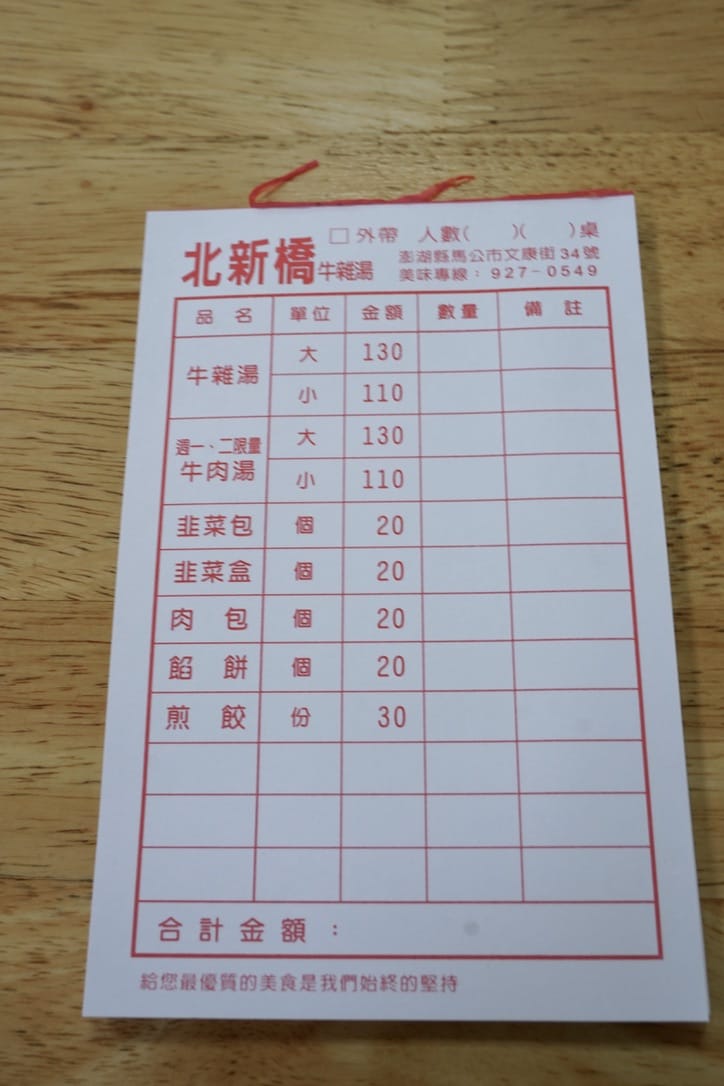 □外帶 人數( )( )桌
北新橋牛雜湯
澎湖縣馬公市文康街34號
美味專線：927-0549
品名 單位 金額 數量 備註
牛雜湯 大 130
小 110
週一、二限量
牛肉湯 大 130
小 110
韭菜包 個 20
韭菜盒 個 20
肉包 個 20
餡餅 個 20
煎餃 份 30
合計金額：
給您最優質的美食是我們始終的堅持